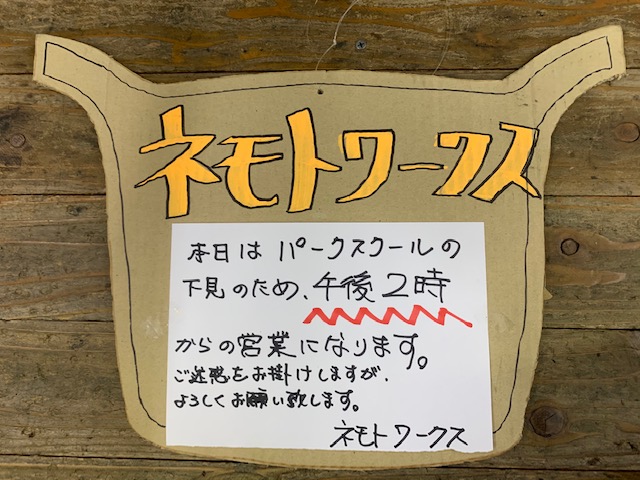 ネモトワークス
本日は パークスクールの
下見のため、午後2時
からの営業になります。
ご迷惑をお掛けしますが、
よろしくお願い致します。
ネモトワークス